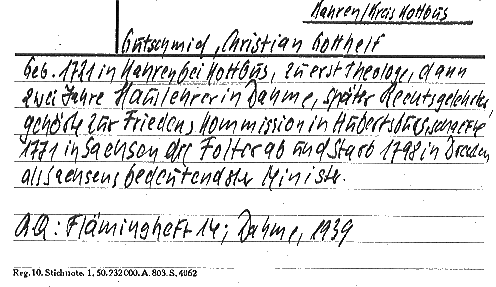 Kahren/Kreis Kottbus
Gutschmid, Christian Gotthelf
Geb. 1721 in Kahren bei Kottbus, zuerst Theologe, dann
zwei Jahre Hauslehrer in Dahme, später Rechtsgelehrter,
gehörte zur Friedenskommission in Hubertsburg, schaffte
1771 in Sachsen die Folter ab und starb 1798 in Dresden
als Sachsens bedeutendster Minister.
A.Q.: Flämingheft 14; Dahme, 1939
Reg. 10. Stichnote. 1, 50. 232 000. A. 803. S. 4062